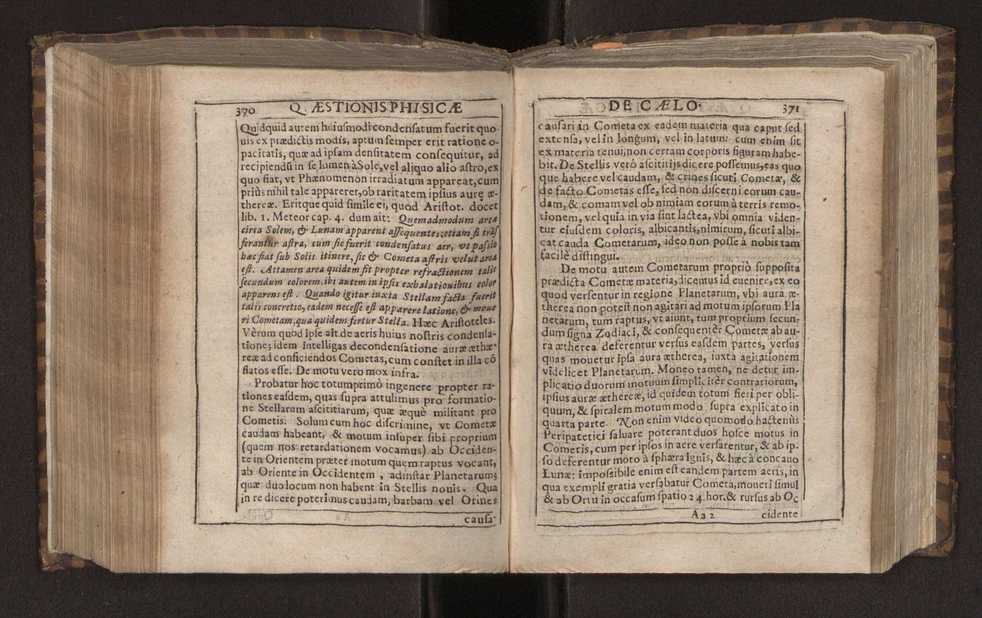 370 Q. ÆSTIONIS PHISICÆ
Quidquid autem huiusmodi condensatum fuerit quo-
uis ex prædictis modis, aptum semper erit ratione o-
pacitatis, quæ ad ipsam densitatem consequitur, ad
recipiendū in se lumen à Sole, vel aliquo alio astro, ex
quo fiat, vt Phænomenon irradiatum appareat, cum
priùs nihil tale appareret, ob raritatem ipsius aure æ-
thereæ. Eritque quid simile ei, quod Aristot. docet
lib. 1. Meteor cap. 4. dum ait: Quemadmodum area
circa Solem, & Lunam apparent assequentes, etiam si trās
ferantur astra, cum sic fuerit condensatus aer, vt passio
hæc fiat sub Solis itinere, sic & Cometa astris velut area
est. Attamen area quidem fit propter refractionem talis
secundum colorem, ibi autem in ipsis exhalationibus color
apparens est. Quando igitur iuxta Stellam facta fuerit
talis concretio, eadem necesse est apparere latione, & moue
ri Cometam, qua quidem fertur Stella. Hæc Aristoteles.
Vèrum quod ipse ait de aeris huius nostris condensa-
tione; idem intelligas de condensatione auræ æthe-
reæ ad conficiendos Cometas, cum constet in illa cō
flatos esse. De motu vero mox infra.
Probatur hoc totum primò in genere propter ra-
tiones easdem, quas supra attulimus pro formatio-
ne Stellarum ascititiarum, quæ æquè militant pro
Cometis. Solum cum hoc discrimine, vt Cometæ
caudam habeant, & motum insuper sibi proprium
(quem nos retardationem vocamus) ab Occiden-
te in Orientem præter motum quem raptus vocant,
ab Oriente in Occidentem, ad instar Planetarum;
quæ duo locum non habent in Stellis nouis. Qua
in re dicere poterimus caudam, barbam vel Crines
causa-
DE CÆLO. 371
causari in Cometa ex eadem materia qua caput sed
extensa, vel in longum, vel in latum: cum enim sit
ex materia tenui, non certam corporis figuram habe-
bit. De Stellis verò ascititijs dicere possemus, eas quo
que habere vel caudam, & crines sicuti Cometæ, &
de facto Cometas esse, sed non discerni eorum cau-
dam, & comam vel ob nimiam eorum à terris remo-
tionem, vel quia in via sint lactea, vbi omnia viden-
tur eiusdem coloris, albicantis, nimirum, sicuti albi-
cat cauda Cometarum, ideo non posse à nobis tam
facilè distingui.
De motu autem Cometarum proprio supposita
prædicta Cometæ materia, dicemus id euenire, ex eo
quod versentur in regione Planetarum, vbi aura æ-
therea non potest non agitari ad motum ipsorum Pla
netarum, tum raptus, vt aiunt, tum proprium secun-
dum signa Zodiaci, & consequenter Cometæ ab au-
ra ætherea deferentur versus easdem partes, versus
quas mouetur ipsa aura ætherea, iuxta agitationem
videlicet Planetarum. Moneo tamen, ne detur im-
plicatio duorum motuum simpliciter contrariorum,
ipsius auræ æthereæ, id quidem totum fieri per obli-
quum, & spiralem motum modo supra explicato in
quarta parte. Non enim video quomodo hactenùs
Peripatetici saluare poterant duos hosce motus in
Cometis, cum per ipsos in aere versarentur, & ab ip-
so deferentur moto à sphæra ignis, & hæc à concauo
Lunæ: impossibile enim est eandem partem aeris, in
qua exempli gratia versabatur Cometa, moueri simul
& ab Ortu in occasum spatio 24. hor. & rursus ab Oc
Aa 2 cidente